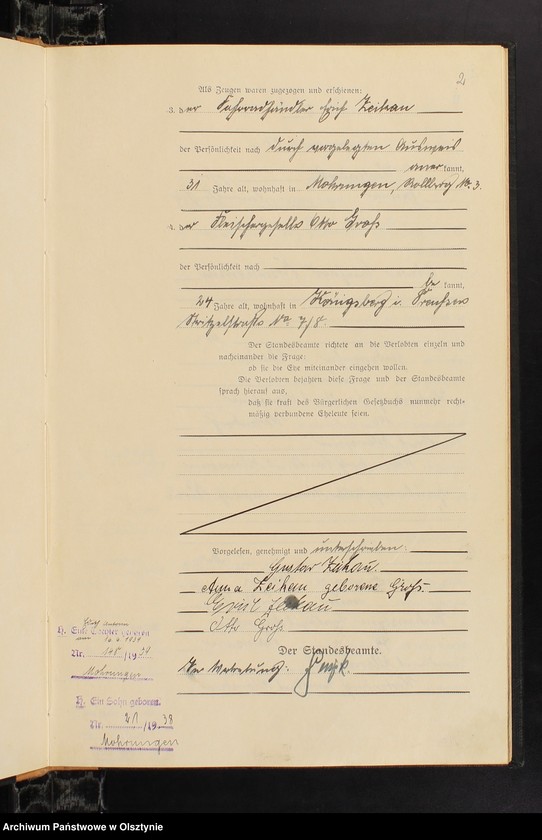 2
Als Zeugen waren zugezogen und erschienen:
3. der Fahrradhändler Erich Zeihau
der Persönlichkeit nach durch vorgelegten Ausweis
anerkannt,
31 Jahre alt, wohnhaft in Mohrungen, Rollberg Nr. 3.
4. der Fleischergeselle Otto Groß
der Persönlichkeit nach
bekannt,
24 Jahre alt, wohnhaft in Königsberg i. Preußen
No 7/8.
Der Standesbeamte richtete an die Verlobten einzeln und
nacheinander die Frage:
ob sie die Ehe miteinander eingehen wollen.
Die Verlobten bejahten diese Frage und der Standesbeamte
sprach hierauf aus,
daß sie kraft des Bürgerlichen Gesetzbuchs nunmehr recht-
mäßig verbundene Eheleute seien.
Vorgelesen, genehmigt und unterschrieben:
Gustav Zeihau.
Anna Zeihau geborene Groß.
Erich Zeihau
Otto Groß
Der Standesbeamte.
In Vertretung:
H. Eine Tochter geboren
Nr. 148/1934
Mohrungen
H. Ein Sohn geboren.
Nr. 21/1938
Mohrungen
Archiwum Państwowe w Olsztynie